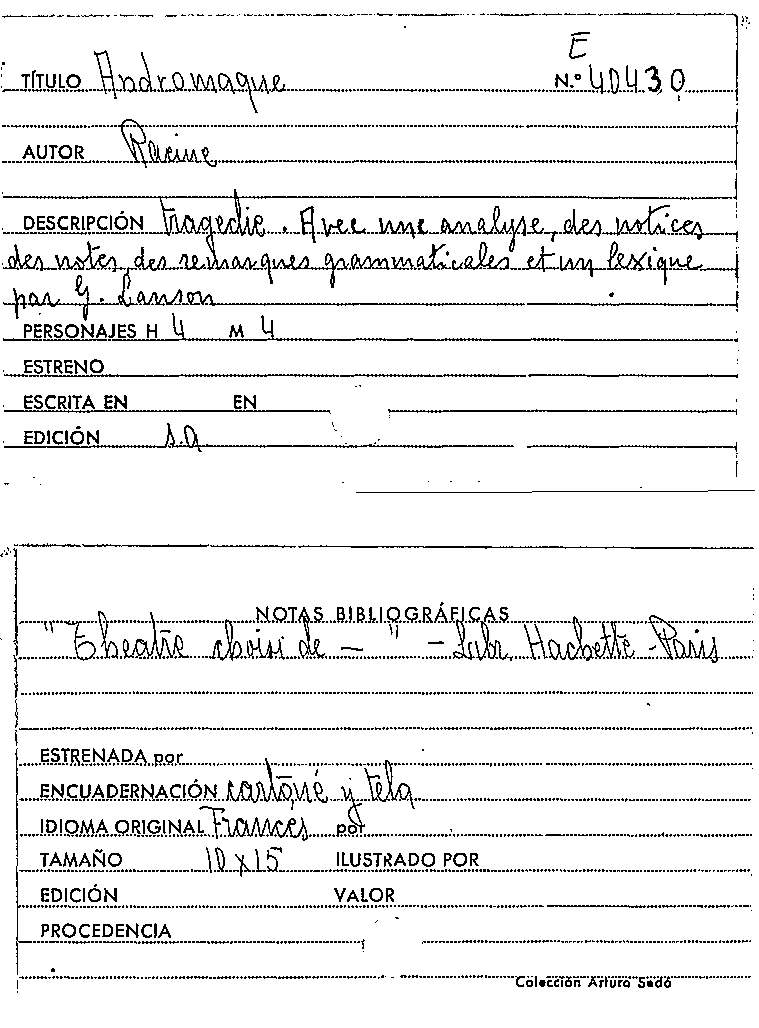 E
TÍTULO Andromaque N.º 40430
AUTOR Racine
DESCRIPCIÓN tragedie. Avec une analyse, des notices
des notes, des remarques grammaticales et un lexique
par G. Lanson
PERSONAJES H 4 M 4
ESTRENO
ESCRITA EN EN
EDICIÓN s.a
NOTAS BIBLIOGRÁFICAS
"Theatre choisi de — " - Libr. Hachette - Paris
ESTRENADA por
ENCUADERNACIÓN cartoné y tela
IDIOMA ORIGINAL Frances por
TAMAÑO 10 x 15 ILUSTRADO POR
EDICIÓN VALOR
PROCEDENCIA
Colección Arturo Sedó